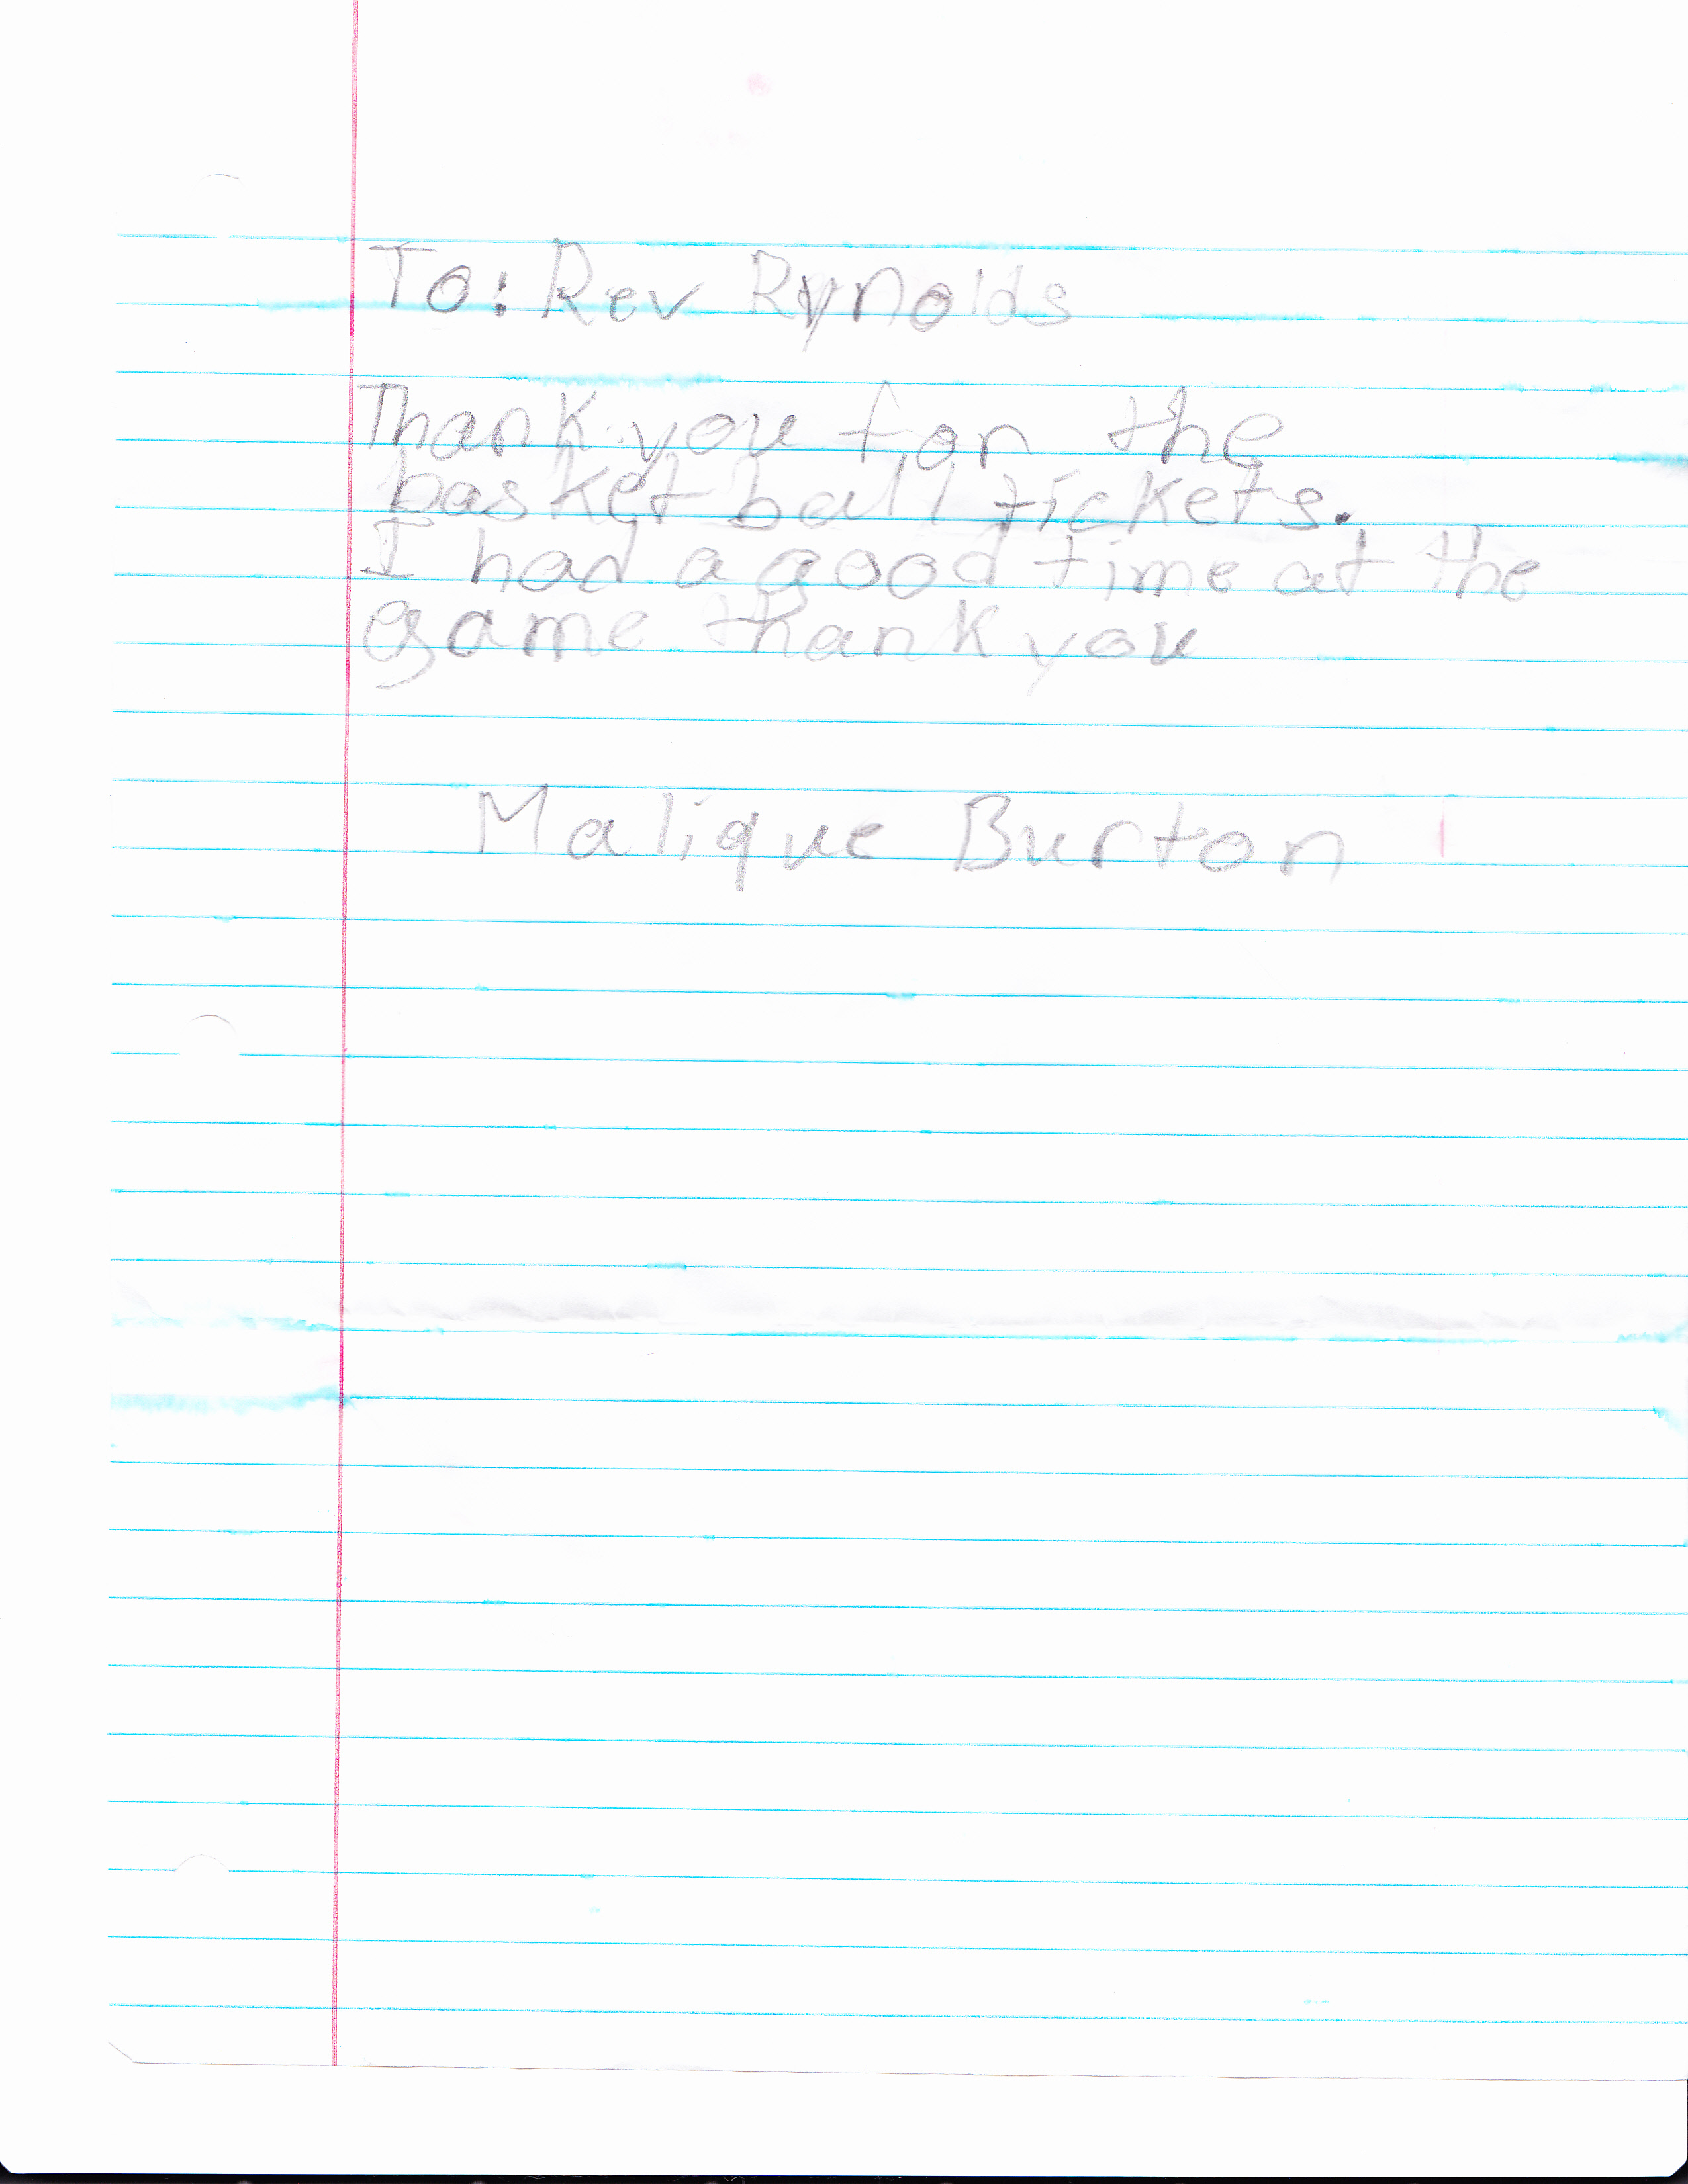 To: Rev Rynolds
Thank you for the
basket ball tickets.
I had a good time at the
game thank you
Malique Burton